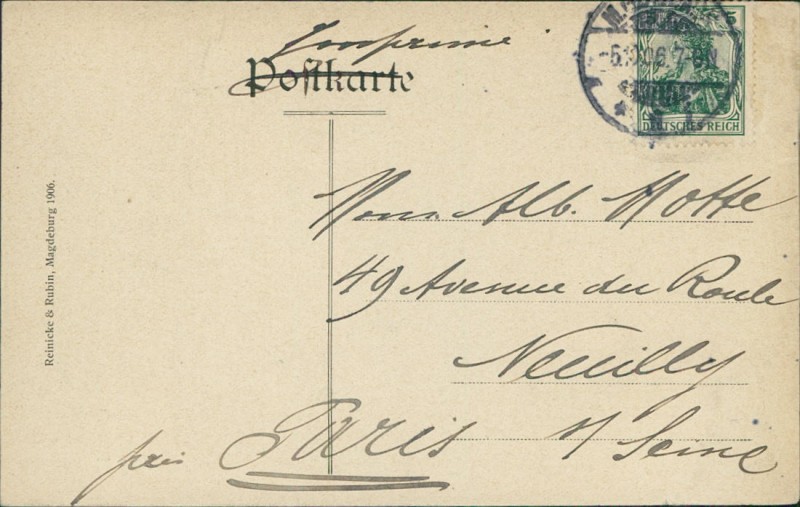 Imprimé
Postkarte
5
DEUTSCHES REICH
06. 7-8N
Mons. Alb. Motte
49 Avenue du Roule
Neuilly
s/ Seine
près Paris
Reinicke & Rubin, Magdeburg 1906.